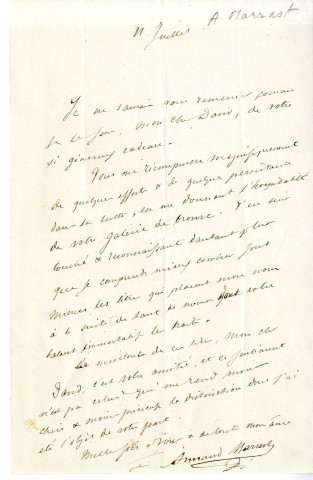 A. Marrast
11 Juillet
Je ne saurai vous remercier comme
je le , mon cher David, de votre
si généreux cadeau.
Vous me récompensez magnifiquement
de quelques efforts & de quelque persistance
dans la lutte, en me donnant l'hospitalité
de votre galerie de bronze. J'en suis
touché & reconnaissant d'autant plus
que je comprends mieux combien sont
minces les titres qui placent mon nom
à la suite de tant de noms dont votre
talent immortalise les traits.
Le meilleur de ces titres, mon cher
David, c'est votre amitié, et ce
n'est pas celui qui me rend moins
chère & moins précieuse la distinction dont j'ai
été l'objet de votre part.
Mille fois à vous & de tout mon âme
Armand Marrast